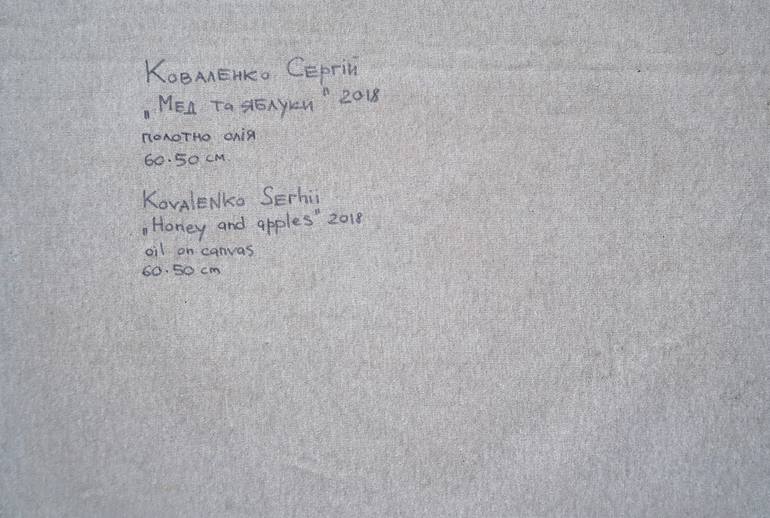 Коваленко Сергій
„Мед та яблуки" 2018
полотно олія
60·50 см.
Kovalenko Serhii
„Honey and apples" 2018
oil on canvas
60·50 cm